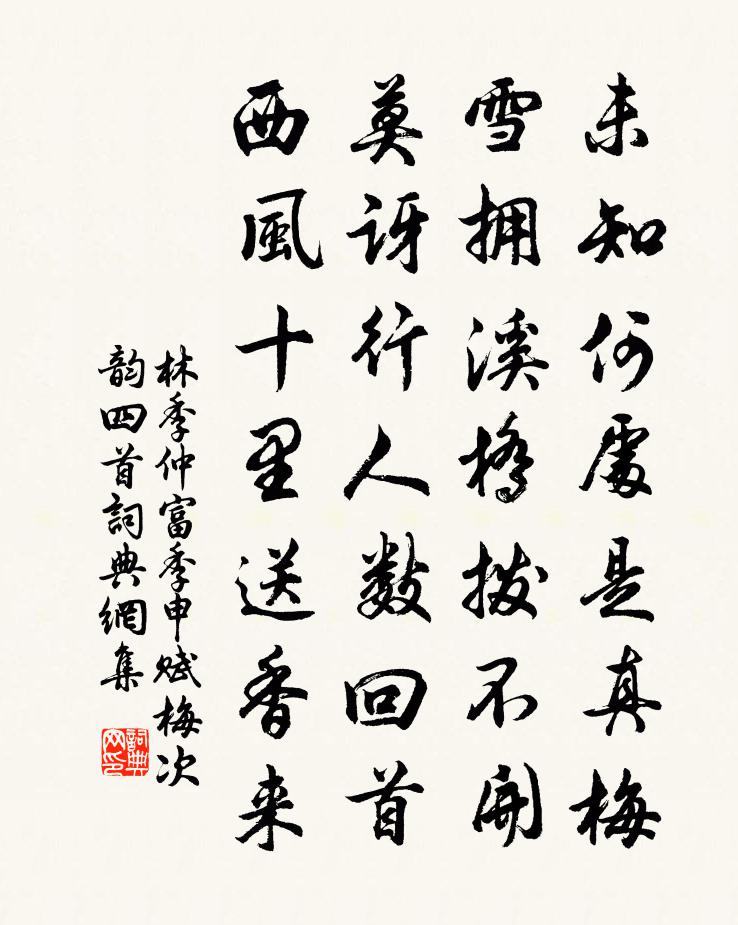 未知何處是真梅
雪拥溪橋拨不開
莫訝行人数回首
西風十里送香来
林季仲富季申赋梅次
韵四首詞典網集
詞典网印